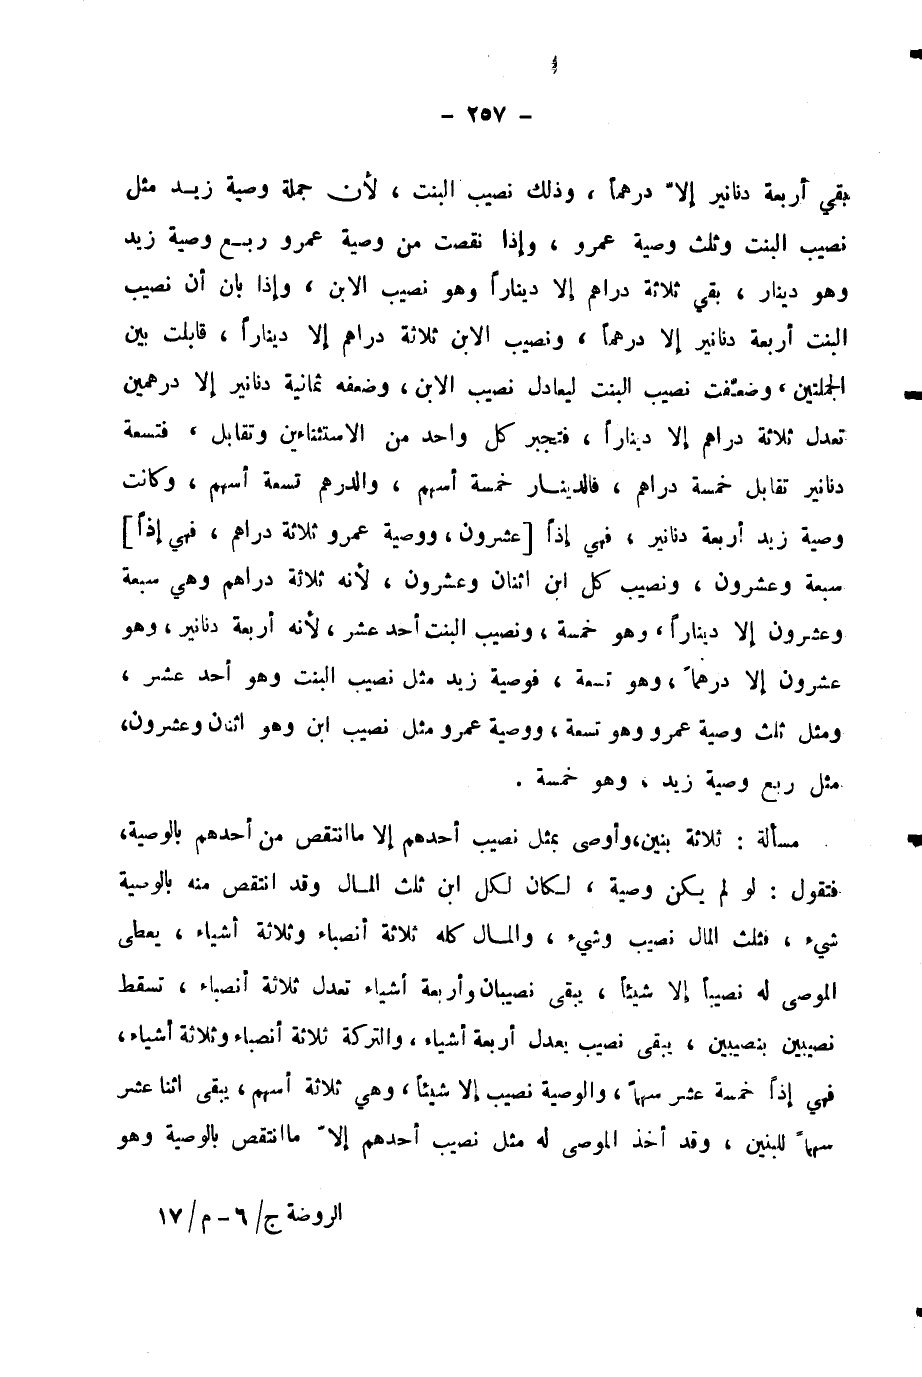 - ٢٥٧ -
بقي أربعة دنانير إلاّ درهماً ، وذلك نصيب البنت ، لأن جملة وصية زيد مثل
نصيب البنت وثلث وصية عمرو ، وإذا نقصت من وصية عمرو ربع وصية زيد
وهو دينار ، بقي ثلاثة دراهم إلا ديناراً وهو نصيب الابن ، وإذا بان أن نصيب
البنت أربعة دنانير إلا درهماً ، ونصيب الابن ثلاثة دراهم إلا ديناراً ، قابلت بين
الجملتين ، وضعّفت نصيب البنت ليعادل نصيب الابن ، وضعفه ثمانية دنانير إلا درهمين
تعدل ثلاثة دراهم إلا ديناراً ، فتجبر كل واحد من الاستثناءين وتقابل ، فتسعة
دنانير تقابل خمسة دراهم ، فالدينار خمسة أسهم ، والدرهم تسعة أسهم ، وكانت
وصية زيد أربعة دنانير ، فهي إذاً [عشرون ، ووصية عمرو ثلاثة دراهم ، فهي إذاً]
سبعة وعشرون ، ونصيب كل ابن اثنان وعشرون ، لأنه ثلاثة دراهم وهي سبعة
وعشرون إلا ديناراً ، وهو خمسة ، ونصيب البنت أحد عشر ، لأنه أربعة دنانير ، وهو
عشرون إلا درهماً ، وهو تسعة ، فوصية زيد مثل نصيب البنت وهو أحد عشر ،
ومثل ثلث وصية عمرو وهو تسعة ، ووصية عمرو مثل نصيب ابن وهو اثنان وعشرون،
مثل ربع وصية زيد ، وهو خمسة .
مسألة : ثلاثة بنين،وأوصى بمثل نصيب أحدهم إلا ماانتقص من أحدهم بالوصية،
فتقول : لو لم يكن وصية ، لكان لكل ابن ثلث المال وقد انتقص منه بالوصية
شيء ، فثلث المال نصيب وشيء ، والمال كله ثلاثة أنصباء وثلاثة أشياء ، يعطى
الموصى له نصيباً إلا شيئاً ، يبقى نصيبان وأربعة أشياء تعدل ثلاثة أنصباء ، تسقط
نصيبين بنصيبين ، يبقى نصيب يعدل أربعة أشياء ، والتركة ثلاثة أنصباء وثلاثة أشياء ،
فهي إذاً خمسة عشر سهماً ، والوصية نصيب إلا شيئاً ، وهي ثلاثة أسهم ، يبقى اثنا عشر
سهماً للبنين ، وقد أخذ الموصى له مثل نصيب أحدهم إلاّ ماانتقص بالوصية وهو
الروضة ج/ ٦ - م/ ١٧